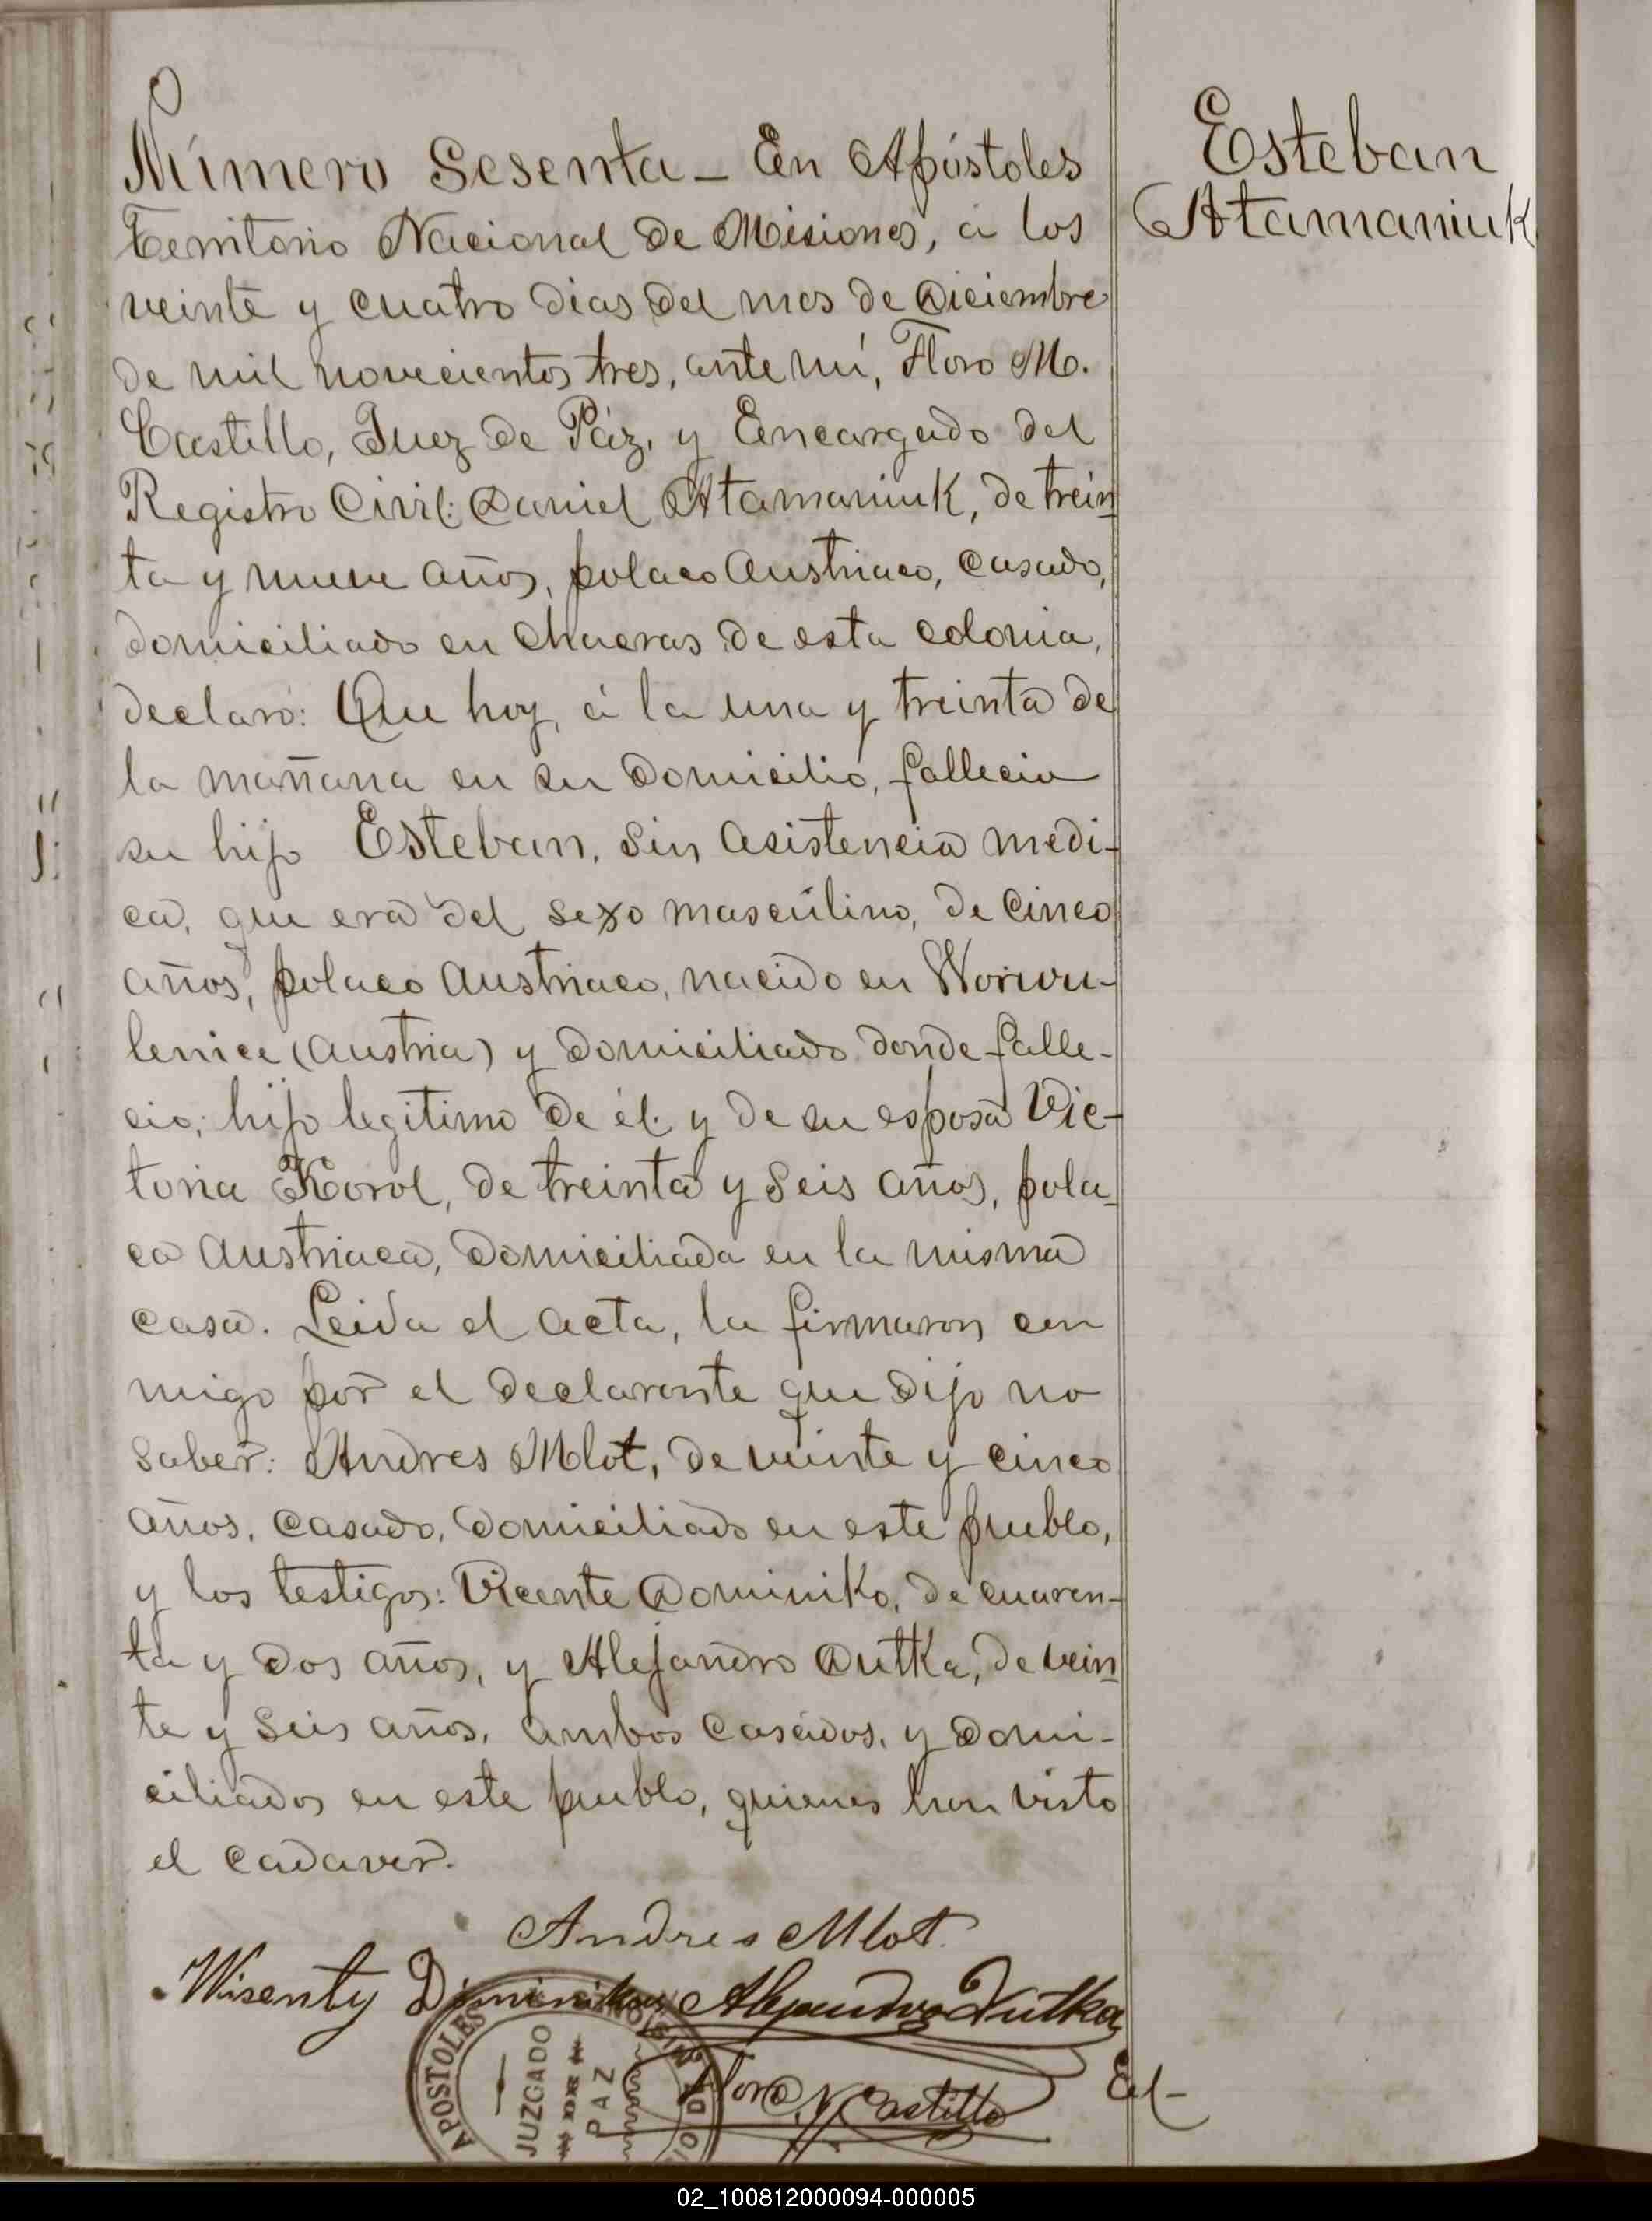 Número Sesenta_ En Apóstoles
Territorio Nacional de Misiones, á los
veinte y cuatro dias del mes de Diciembre
de mil novecientos tres, ante mí, Floro M.
Castillo, Juez de Páz, y Encargado del
Registro Civil: Daniel Atamaniuk, de trein
ta y nueve años, polaco Austriaco, casado,
domiciliado en chacras de esta colonia,
declaró: Que hoy, á la una y treinta de
la mañana en su domicilio, fallecio
su hijo Esteban, sin asistencia medi-
ca, que era del sexo masculino, de cinco
años, polaco Austriaco, nacido en
(Austria) y domiciliado donde falle-
cio; hijo legitimo de él y de su esposa Vic-
toria Korol, de treinta y seis años, pola_
ca Austriaca, domiciliada en la misma
casa. Leida el acta, la firmaron con
migo por el declarante que dijo no
saber: Andres Mlot, de veinte y cinco
años, casado, domiciliado en este pueblo,
y los testigos: Vicente Dominiko, de cuaren-
ta y dos años, y Alejandro Dutka, de vein
te y seis años, ambos casados, y domi-
ciliados en este pueblo, quienes han visto
el cadaver.
Andres Mlot.
Wisenty Alejandro Dutka
Floro M Castillo
El-
Esteban
Atamaniuk
APOSTOLES
JUZGADO
DE
PAZ
02_100812000094-000005